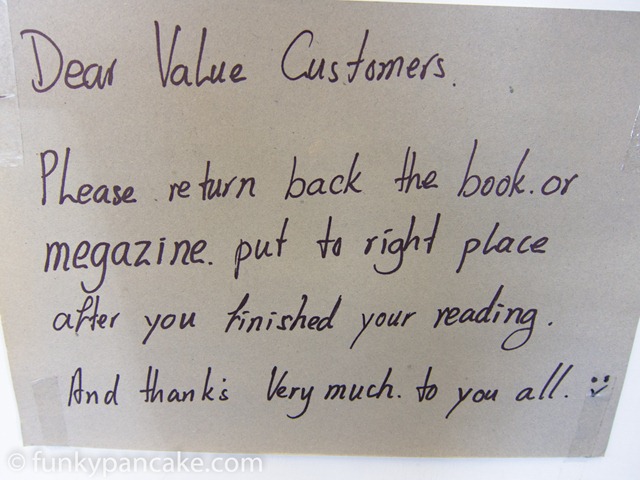 Dear Value Customers.
Please return back the book. or
megazine. put to right place
after you finished your reading.
And thank's Very much. to you all.
© funkypancake.com